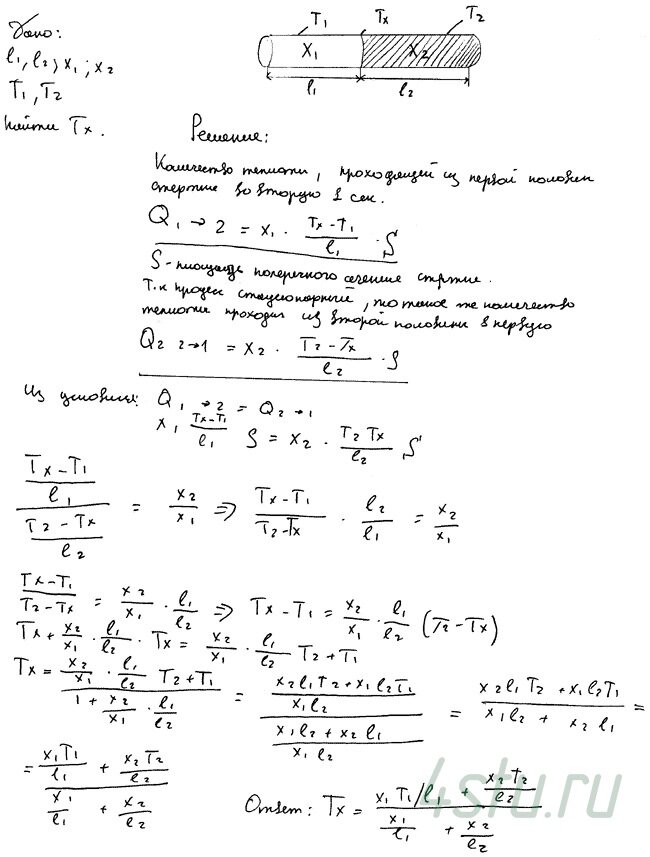 Дано:
l₁, l₂; x₁; x₂
T₁, T₂
Найти Tx.
T₁ Tx T₂
x₁ x₂
l₁ l₂
Решение:
Количество теплоты, проходящей из первой половин
стержне во вторую 1 сек.
Q₁→2 = x₁ · (Tx - T₁)/l₁ · S
S - площадь поперечного сечения стержне.
Т.к процесс стационарный, то такое же количество
теплоты проходит из второй половини в первую
Q₂ 2→1 = x₂ · (T₂ - Tx)/l₂ · S
Из условия: Q₁→2 = Q₂→1
x₁ (Tx-T₁)/l₁ S = x₂ · (T₂ Tx)/l₂ S
((Tx-T₁)/l₁)/((T₂-Tx)/l₂) = x₂/x₁ ⇒ (Tx-T₁)/(T₂-Tx) · l₂/l₁ = x₂/x₁
(Tx-T₁)/(T₂-Tx) = x₂/x₁ · l₁/l₂ ⇒ Tx - T₁ = x₂/x₁ · l₁/l₂ (T₂-Tx)
Tx + x₂/x₁ · l₁/l₂ · Tx = x₂/x₁ · l₁/l₂ T₂ + T₁
Tx = (x₂/x₁ · l₁/l₂ T₂ + T₁)/(1 + x₂/x₁ · l₁/l₂) = ((x₂l₁T₂ + x₁l₂T₁)/(x₁l₂))/((x₁l₂ + x₂l₁)/(x₁l₂)) = (x₂l₁T₂ + x₁l₂T₁)/(x₁l₂ + x₂l₁) =
= (x₁T₁/l₁ + x₂T₂/l₂)/(x₁/l₁ + x₂/l₂) Ответ: Tx = (x₁T₁/l₁ + x₂T₂/l₂)/(x₁/l₁ + x₂/l₂)
4stu.ru